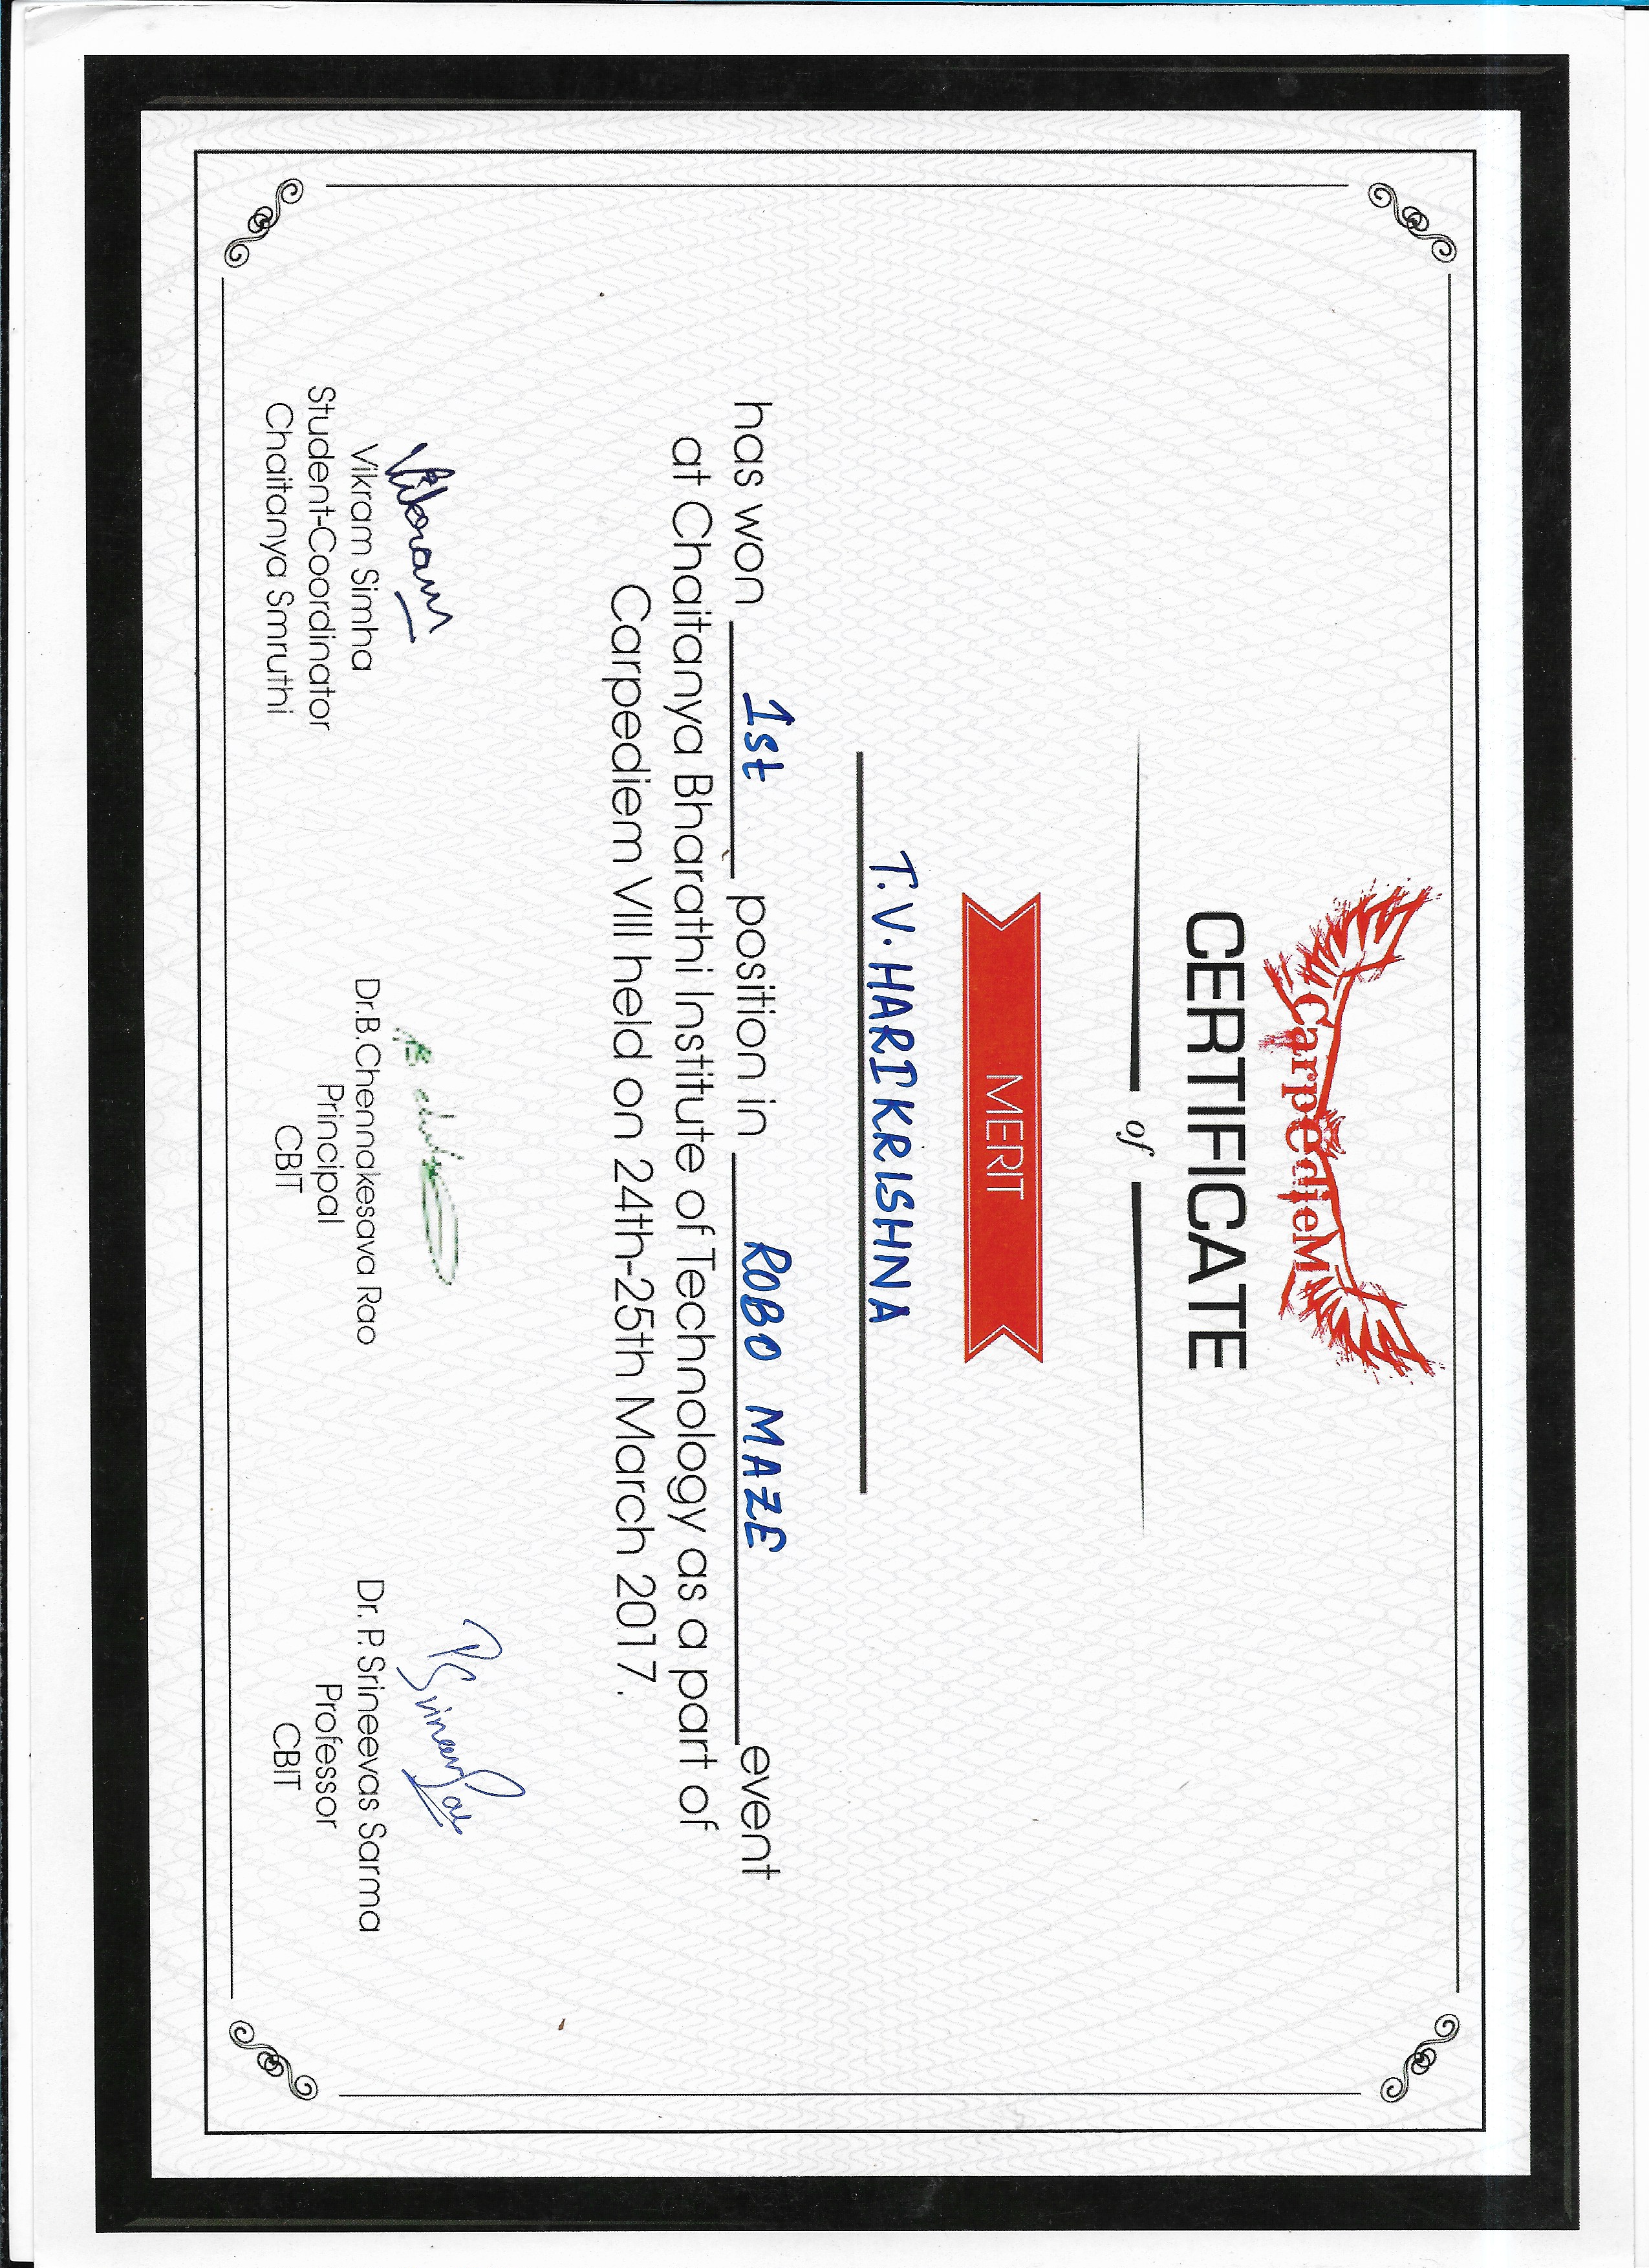 CarpedieM
CERTIFICATE
of
MERIT
T.V. HARIKRISHNA
has won 1st position in ROBO MAZE event
at Chaitanya Bharathi Institute of Technology as a part of
Carpediem VIII held on 24th-25th March 2017.
Vikram
P Srineevas
Vikram Simha
Student-Coordinator
Chaitanya Smruthi
Dr.B.Chennakesava Rao
Principal
CBIT
Dr. P. Srineevas Sarma
Professor
CBIT